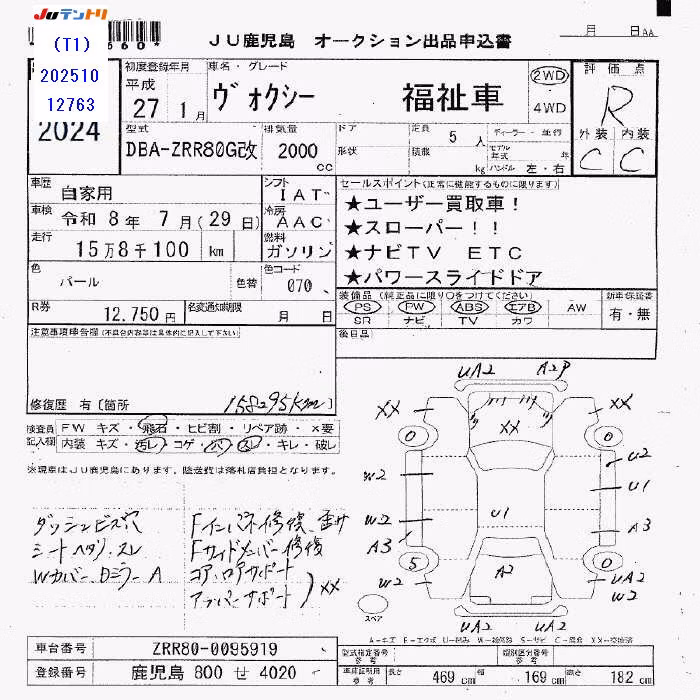 JUテントリ
(T1)
202510
12763
2024
JU鹿児島 オークション出品申込書
月 日AA
初度登録年月
平成
27 1月
車名・グレード
ヴォクシー 福祉車
2WD
4WD
評価点
R
外装 内装
C C
型式
DBA-ZRR80G改
排気量
2000 cc
ドア
形状
定員 5 人
積載 kg
ディーラー・並行
モデル
年式 年
ハンドル 左・右
車歴
自家用
シフト
IAT
車検
令和 8年 7月(29日)
冷房
AAC
走行
15万8千100 km
燃料
ガソリン
色
パール
色替
色コード
070
R券
12,750円
名変通知期限
月 日
セールスポイント(正常に機能するものに限ります)
★ユーザー買取車!
★スローパー!!
★ナビTV ETC
★パワースライドドア
装備品(純正品に限り○をつけてください)
PS PW ABS エアB AW
SR ナビ TV カワ
新車保証書
有・無
後日品
注意事項車告欄(不具合内容等は具体的に記入して下さい)
修復歴 有〔箇所
158295km〕
検査員
記入欄
FW キズ・飛石・ヒビ割・リペア跡・×要
内装 キズ・汚レ・コゲ・穴・スレ・キレ・破レ
※現車はJU鹿児島にあります。陸送費は落札店負担となります。
ダッシュビス穴
シートヘタリ.スレ
Wカバー.DミラーA
Fインパネ修復.歪サ
Fサイドメンバー修復
コア.ロアサポート
アッパーサポート
XX
UA2 A2P
XX XX XX
0 0
W2 U2
U1
W2 U1 A3
A3
5 0
W2 A2 UA2
W2
UA2 UA2
スペア
A-キズ E-エクボ U-凹み W-補修跡 S-サビ C-腐食 XX-交換済
車台番号
ZRR80-0095919
登録番号
鹿児島 800 せ 4020
型式指定番号
参考
類別区分番号
参考
車庫証明用
参考
長さ 469 cm 幅 169 cm 高さ 182 cm